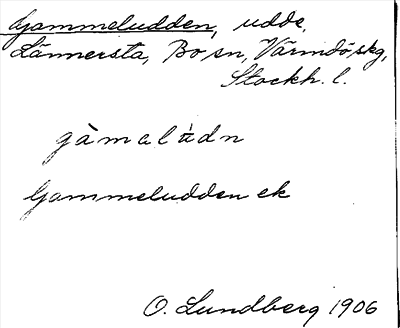 Gammeludden, udde,
Lännersta, Bo sn, Värmdö skg,
Stockh. l.
gàmalùdn
Gammeludden ek
O. Lundberg 1906